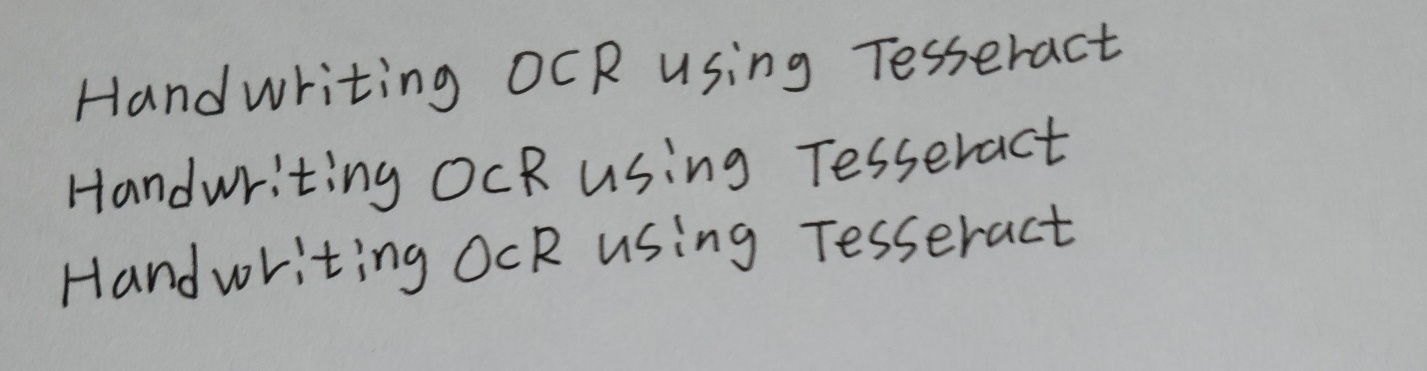 Handwriting OCR using Tesseract
Handwriting OCR using Tesseract
Handwriting OCR using Tesseract